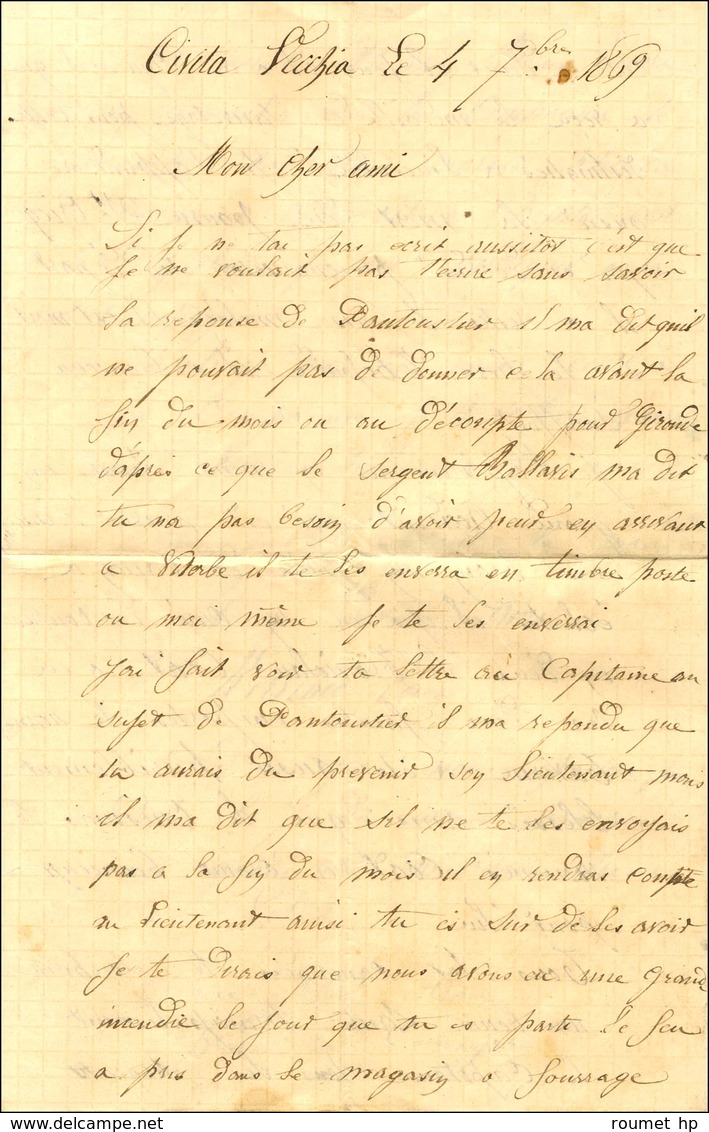 Civita Vecchia le 4 7bre 1869
Mon cher ami
Si je ne tai pas ecrit aussitot c'est que
je ne voulait pas t'ecrire sans savoir
la reponse de Pantoustier il ma dit quil
ne pouvait pas de donner cela avant la
fin du mois ou au décompte pour Gironde
d'apres ce que le sergent Ballavis ma dit
tu na pas besoin d'avoir peur en arrivant
a Viterbe il te les enverra en timbre poste
ou moi même je te les enverrai
jai fait voir ta lettre au Capitaine au
sujet de Pantoustier il ma repondu que
ta aurais du prevenir son lieutenant mais
il ma dit que sil ne te les envoyais
pas a la fin du mois il en rendras compte
au lieutenant ainsi tu es sur de les avoir
je te dirais que nous avons eu une grande
incendie le jour que tu es parti le feu
a pris dans le magasin a fourrage
roumet hp